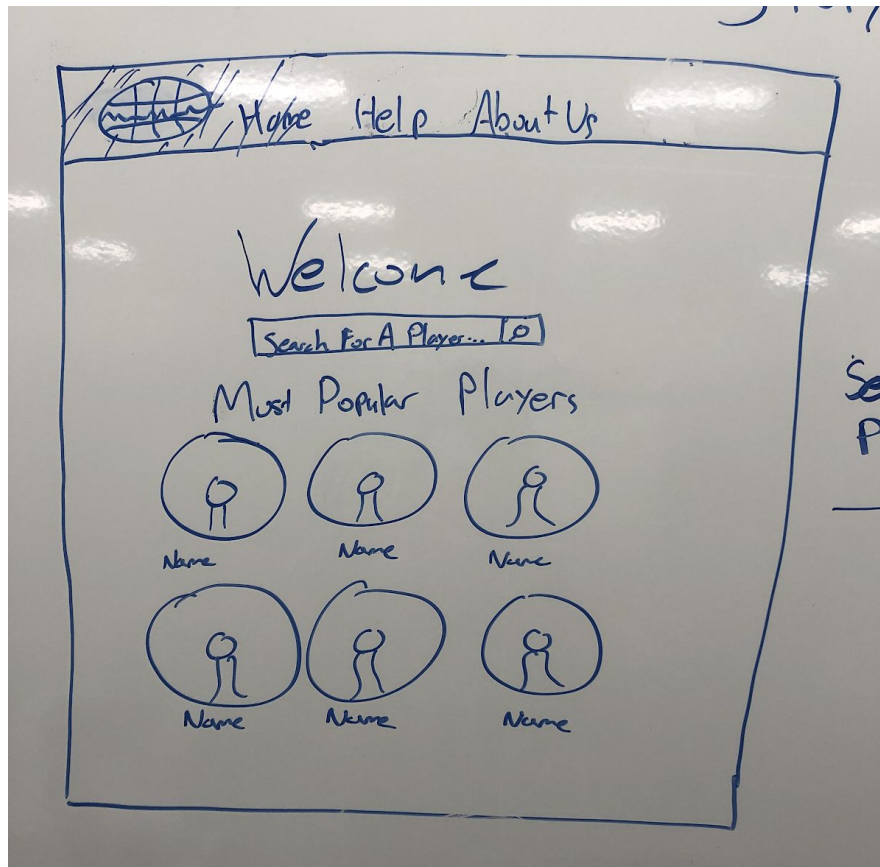 Home Help About Us
Welcome
Search For A Player...
Most Popular Players
Name Name Name
Name Name Name